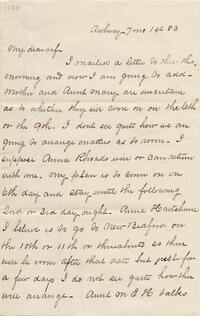 Asbury 7mo 1st 83
My dear wife
I mailed a letter to thee this
morning and now I am going to add
Mother and Aunt Mary are uncertain
as to whether they will come on on the 6th
or the 9th. I dont see quite how we are
going to arrange matters as to room. I
suppose Anna Rhoads will or can
with me. My plan is to come on on
6th day and stay until the following
2nd or 3rd day night. Anna Hartshorne
I believe is to go to New Bedford on
the 10th or 11th or thereabouts so there
will be room after that date but just for
a few days I do not see quite how thee
will arrange. Aunt M E H talks